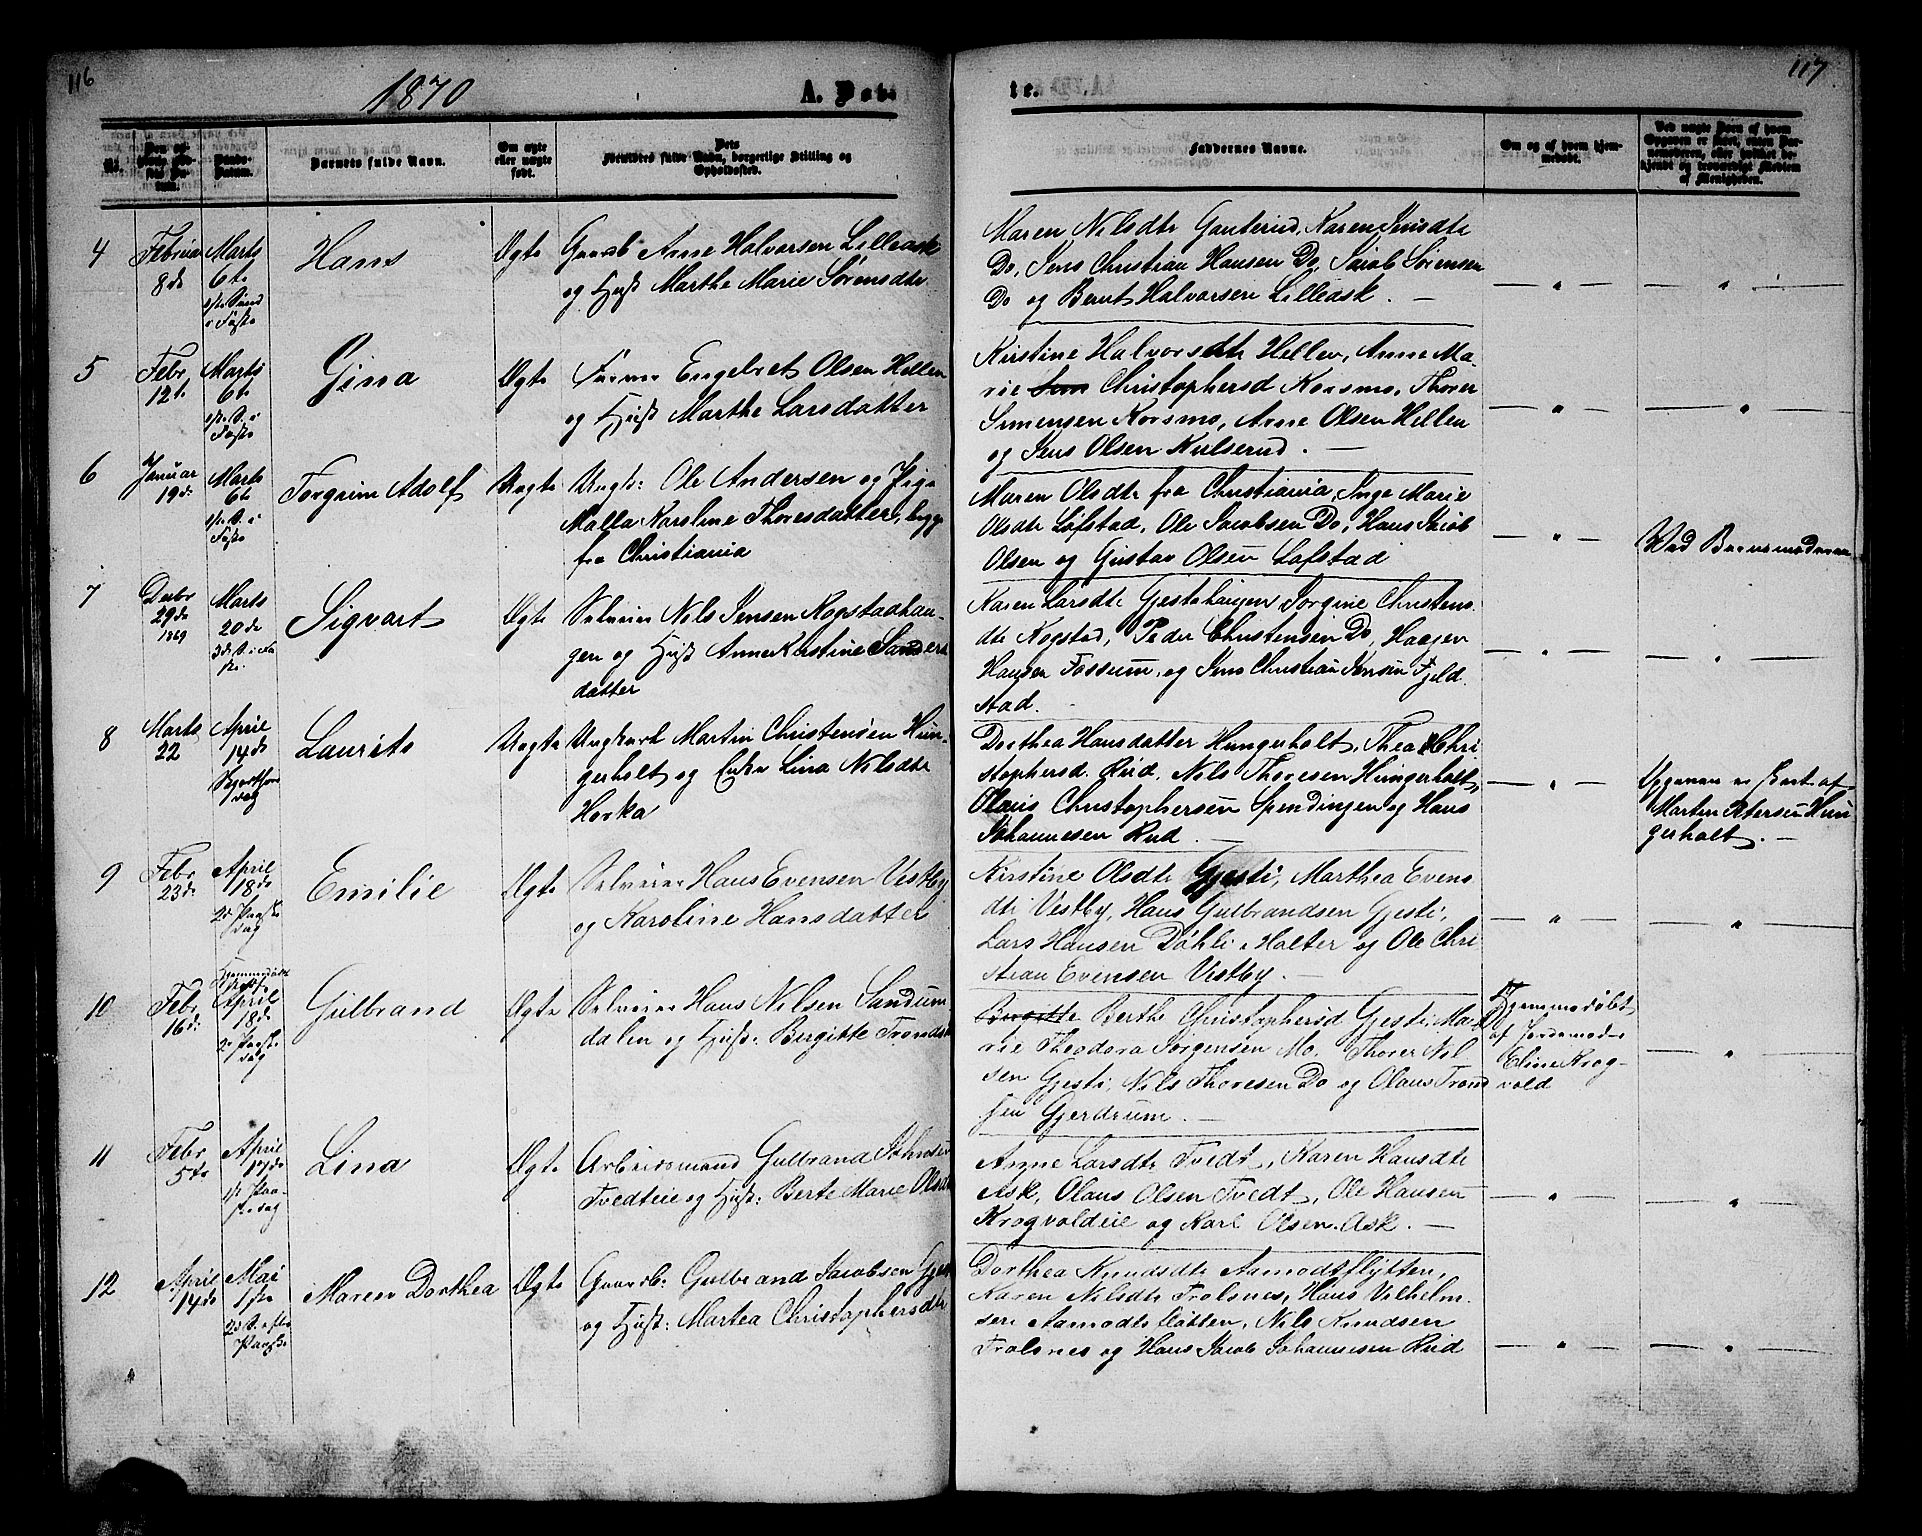 116
1870
A. Døb-
te.
117
Nr.
Barnets fulde Navn.
Om ægte eller uægte født.
Dets Forældres fulde Navn, borgerlige Stilling og Opholdssted.
Faddernes Navne.
Om og af hvem hjemmedøbt.
4
Februar 8de
Marts 6te
Hans
Ægte
Gaardb Arne Halvorsen Lilleask
og Hust Marthe Marie Sørensdtr
Maren Nilsdtr Gauterud, Karen Knudtr
Do, Jens Christian Hansen Do, Jacob Sørensen
Do og Bernt Halvorsen Lilleask. —
— " —
— " —
5
Febr 12te
Marts 6te
Gina
Ægte
Engebret Olsen Hellen
og Hust Marthe Larsdatter
Kirstine Halvorsdtr Hellen, Anne Ma-
rie Christophersd Korsmo, Thorer
Simensen Korsmo, Arne Olsen Hellen
og Jens Olsen Kulserud. —
— " —
— " —
6
Januar 19de
Marts 6te
Torgrim Adolf
Uægte
Ungk: Ole Andersen og Pige
Malla Karoline Thoresdatter, begge
fra Christiania
Maren Olsdtr fra Christiania, Inge Marie
Olsdtr Løfstad, Ole Jacobsen Do, Hans Jacob
Olsen og Gustav Olsen Løfstad
— " —
Ved Barnemoderen
7
Decbr 29de 1869
Marts 20de
Sigvart
Ægte
Selveier Nils Jensen Kogstadhau-
gen og Hust Anne Kirstine Sanders
datter
Karen Larsdtr Gjestehaugen, Jorgine Christens-
dtr Kogstad, Peder Christensen Do, Haagen
Hansen Fossum, og Jens Christian Jensen Fjeld-
stad.
— " —
— " —
8
Marts 22
April 14de
Skjærthorsdag
Laurits
Uægte
Ungkarl Martin Christensen Hun-
gerholt og Enke Lina Nilsdtr
Horka
Dorthea Hansdatter Hungerholt, Thea Chri
stophersd. Rud, Nils Thoresen Hungerholt,
Olaus Christophersen Spendingen og Hans
Johannesen Rud. —
— " —
Opgaven er bort af
Martin Petersen Hun
gerholt. —
9
Febr 23de
April 18de
2d Paaskedag
Emilie
Ægte
Selveier Hans Evensen Vestby
og Karoline Hansdatter
Kirstine Olsdtr Gjesti, Marthea Evens
dtr Vestby, Hans Gulbrandsen Gjesti,
Lars Hansen Døhli, Halter og Ole Chri
stian Evensen Vestby. —
— " —
— " —
10
Febr 16de
April 18de
2 Paaskedag
Gulbrand
Ægte
Selveier Hans Nilsen Sandum
dalen og Hust: Birgitte Trondsdtr
Birgitte Berthe Christophersd Gjesti, Ma-
rie Theodora Jørgensen Mo, Thorer Nil
sen Gjesti, Nils Thoresen Do og Olaus Trond
sen Gjerdrum. —
Hjemmedøbt
af Jordemoder
Eline Krog-
vold
— " —
11
Febr 5te
April 17de
1ste Paaskedag
Lina
Ægte
Arbeidsmand Gulbrand Johnsen
Tvedteie og Hust: Berte Marie Olsdtr
Anne Larsdtr Tvedt, Karen Hansdtr
Ask, Olaus Olsen Tvedt, Ole Hansen
Krogvoldeie og Karl Olsen Ask. —
— " —
— " —
12
April 14de
Mai 1ste
2d S. efter Paaske
Maren Dorthea
Ægte
Gaardb: Gulbrand Jacobsen Gjesti
og Hust: Martea Christophersdtr
Dorthea Knudsdtr Aamodtfløtten,
Karen Nilsdtr Frolsnes, Hans Vilhelm-
sen Aamodtfløtten, Nils Knudsen
Frolsnes og Hans Jacob Johannesen Rud
— " —
— " —